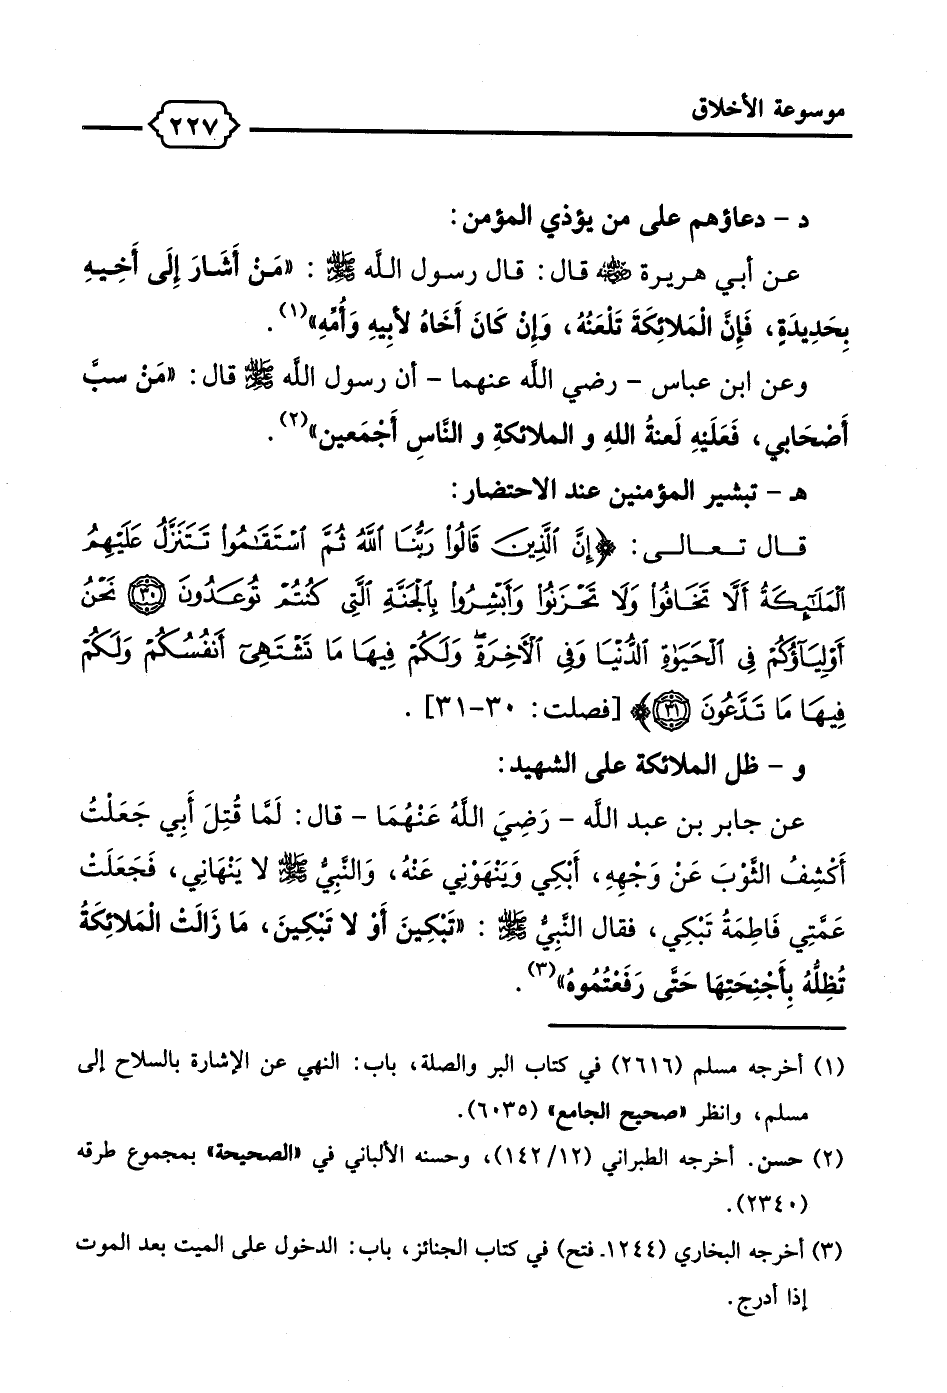 موسوعة الأخلاق
٢٢٧
د - دعاؤهم على من يؤذي المؤمن:
عن أبي هريرة رضي الله عنه قال: قال رسول اللَّه ﷺ: «مَنْ أَشَارَ إِلَى أَخِيهِ
بِحَدِيدَةٍ، فَإِنَّ الْمَلائِكَةَ تَلْعَنُهُ، وَإِنْ كَانَ أَخَاهُ لأَبِيهِ وَأُمِّهِ»(١).
وعن ابن عباس - رضي اللَّه عنهما - أن رسول اللَّه ﷺ قال: «مَنْ سبَّ
أَصْحَابي، فَعَلَيْهِ لَعنةُ اللهِ و الملائكةِ و النَّاسِ أَجْمَعين»(٢).
هـ - تبشير المؤمنين عند الاحتضار:
قـال تـعـالـى: ﴿إِنَّ ٱلَّذِينَ قَالُوا۟ رَبُّنَا ٱللَّهُ ثُمَّ ٱسْتَقَـٰمُوا۟ تَتَنَزَّلُ عَلَيْهِمُ
ٱلْمَلَـٰٓئِكَةُ أَلَّا تَخَافُوا۟ وَلَا تَحْزَنُوا۟ وَأَبْشِرُوا۟ بِٱلْجَنَّةِ ٱلَّتِى كُنتُمْ تُوعَدُونَ ٣٠ نَحْنُ
أَوْلِيَآؤُكُمْ فِى ٱلْحَيَوٰةِ ٱلدُّنْيَا وَفِى ٱلْأَخِرَةِۖ وَلَكُمْ فِيهَا مَا تَشْتَهِىٓ أَنفُسُكُمْ وَلَكُمْ
فِيهَا مَا تَدَّعُونَ ٣١﴾ [فصلت: ٣٠-٣١].
و - ظل الملائكة على الشهيد:
عن جابر بن عبد اللَّه - رَضِيَ اللَّهُ عَنْهُمَا - قال: لَمَّا قُتِلَ أَبِي جَعَلْتُ
أَكْشِفُ الثَّوْبَ عَنْ وَجْهِهِ، أَبْكِي وَيَنْهَوْنِي عَنْهُ، وَالنَّبِيُّ ﷺ لا يَنْهَانِي، فَجَعَلَتْ
عَمَّتِي فَاطِمَةُ تَبْكِي، فقال النَّبِيُّ ﷺ: «تَبْكِينَ أَوْ لا تَبْكِينَ، مَا زَالَتْ الْمَلائِكَةُ
تُظِلُّهُ بِأَجْنِحَتِهَا حَتَّى رَفَعْتُمُوهُ»(٣).
(١) أخرجه مسلم (٢٦١٦) في كتاب البر والصلة، باب: النهي عن الإشارة بالسلاح إلى
مسلم، وانظر «صحيح الجامع» (٦٠٣٥).
(٢) حسن. أخرجه الطبراني (١٤٢/١٢)، وحسنه الألباني في «الصحيحة» بمجموع طرقه
(٢٣٤٠).
(٣) أخرجه البخاري (١٢٤٤ـ فتح) في كتاب الجنائز، باب: الدخول على الميت بعد الموت
إذا أدرج.